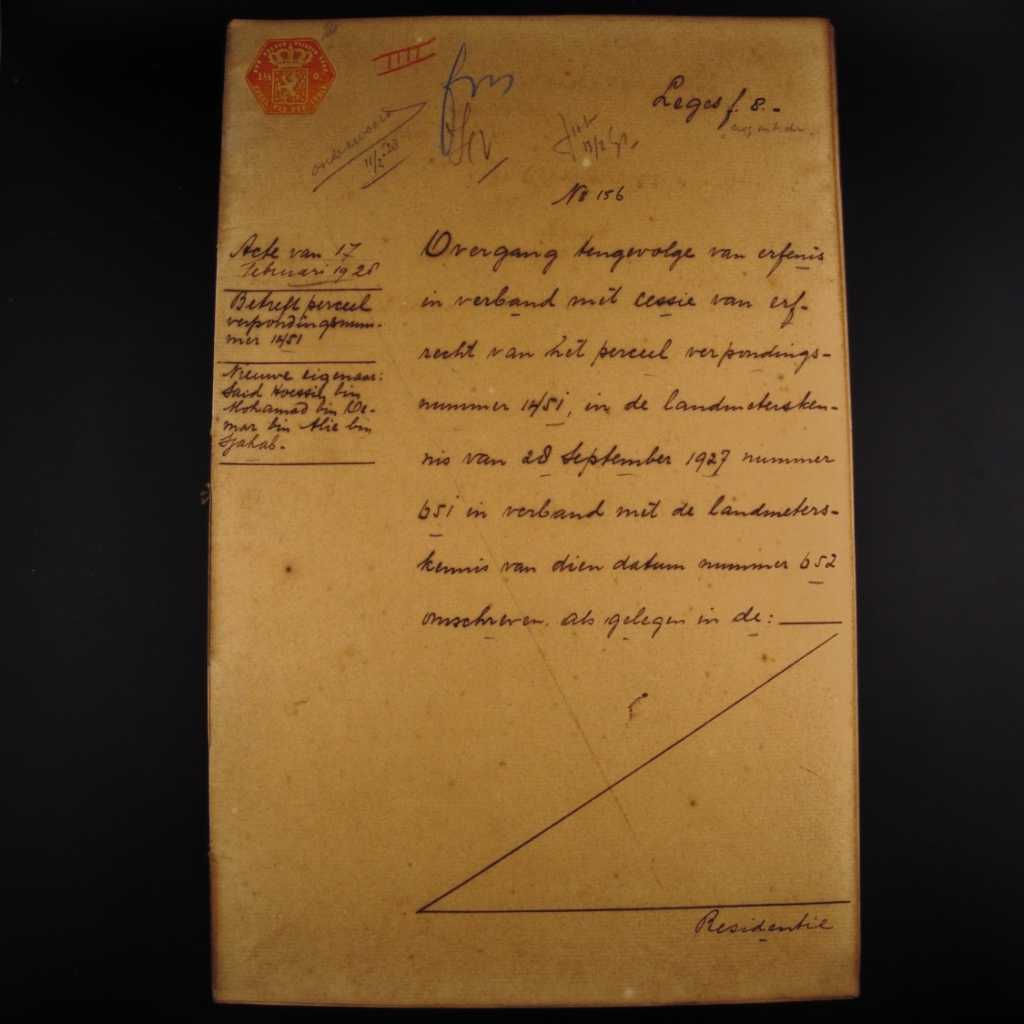 1½ G.
Leges f. 8.-
11/2 '28
13/2
No 156
Acte van 17
Februari 1928
Betreft perceel
verpondingsnum-
mer 1451
Nieuwe eigenaar:
Said Hoessin bin
Mohamad bin Oe-
mar bin Alie bin
Sjahab.-
Overgang tengevolge van erfenis
in verband met cessie van erf-
recht van het perceel verpondings-
nummer 1451, in de landmetersken-
nis van 28 September 1927 nummer
651 in verband met de landmeters-
kennis van dien datum nummer 652
omschreven als gelegen in de:
Residentie